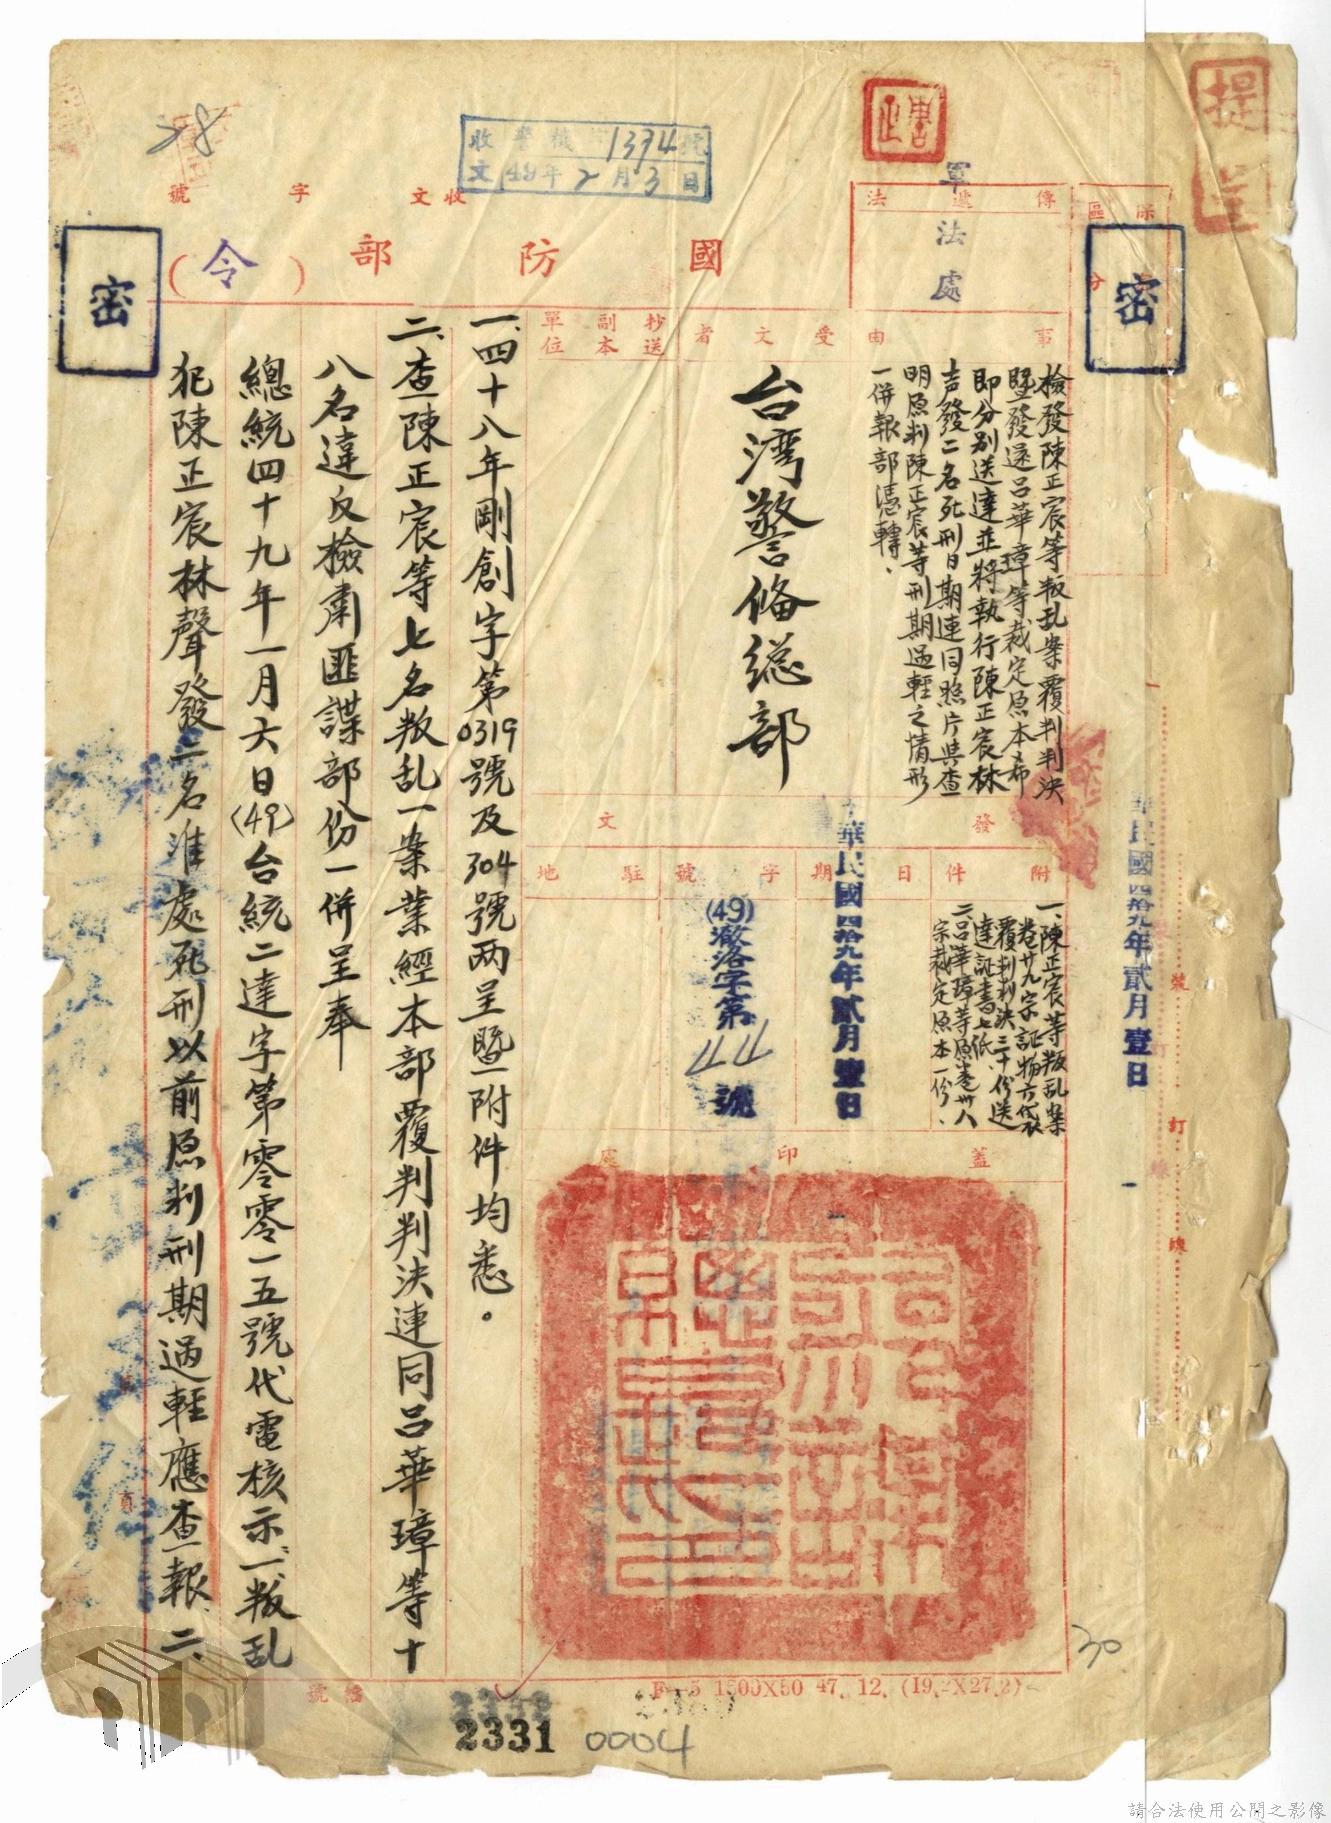 提
密
28
收 警 機 字 1394 號
文 49年 2 月 3 日
收文 字 號
國防部（令）
傳遞法
軍法處
保 區分
密
事由
檢發陳正宸等叛乱案覆判判決
暨發還呂華璋等裁定原本希
即分別送達並將執行陳正宸林
声發二名死刑日期連同照片與查
明原判陳正宸等刑期過輕之情形
一併報部憑轉、
受文者
台湾警备総部
抄送副本單位
發文
附件
一、陳正宸等叛乱案
卷廿九宗証物六袋
覆判判決三十份送
達証書七纸、
二、呂華璋等原卷卅八
宗裁定原本一份、
日期
中華民國四拾九年貳月壹日
字號
(49)澈洛字第44號
駐地
蓋印處
華民國四拾九年貳月壹日
裝 訂 線
一、四十八年剛創字第0319號及304號两呈暨附件均悉。
二、查陳正宸等七名叛乱一案業經本部覆判判決連同呂華璋等十
八名違反檢肅匪諜部份一併呈奉
總統四十九年一月六日(49)台統二達字第零零一五號代電核示：一、叛乱
犯陳正宸林聲發二名准處死刑以前原判刑期過輕應查報、二、
頁
檔號
F—5 1500X50 47. 12. (19.2X27.2)
30
2331
0004
請合法使用公開之影像